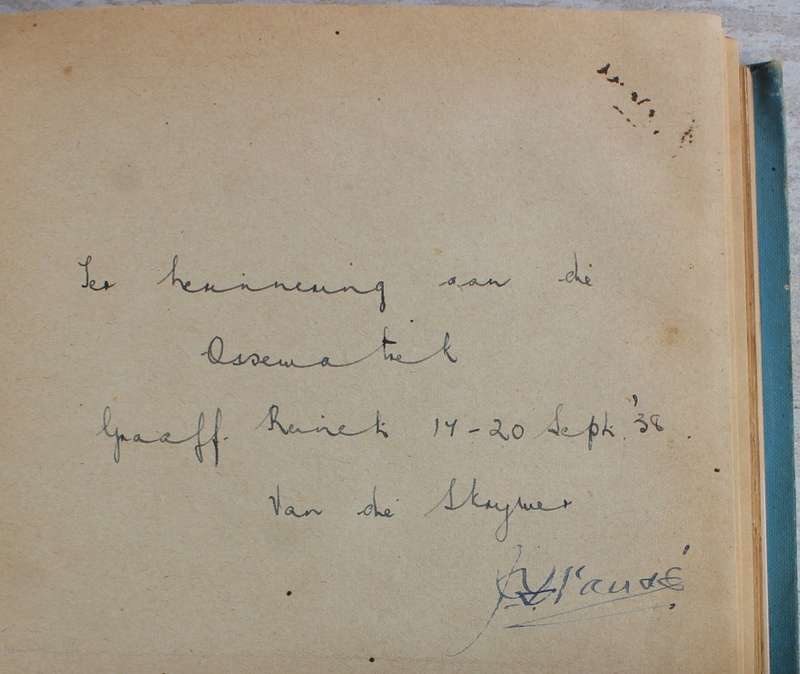 Ter herinnering aan die
Ossewatrek
Graaff. Reinet 17-20 Sept. '38.
Van die Skrywer